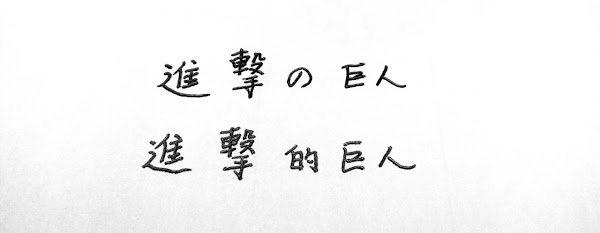 進撃の巨人
進擊的巨人